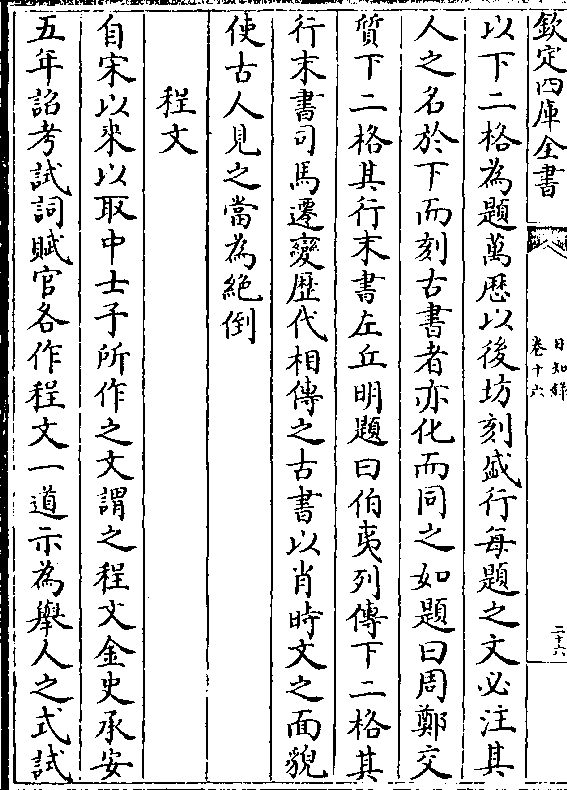 欽定四庫全書
日知錄
卷十六
二十六
以下二格為題萬厯以後坊刻盛行每題之文必注其
人之名於下而刻古書者亦化而同之如題曰周鄭交
質下二格其行末書左丘明題曰伯夷列傳下二格其
行末書司馬遷變歴代相傳之古書以肖時文之面貌
使古人見之當為絶倒
程文
自宋以來以取中士子所作之文謂之程文金史承安
五年詔考試詞賦官各作程文一道示為舉人之式試